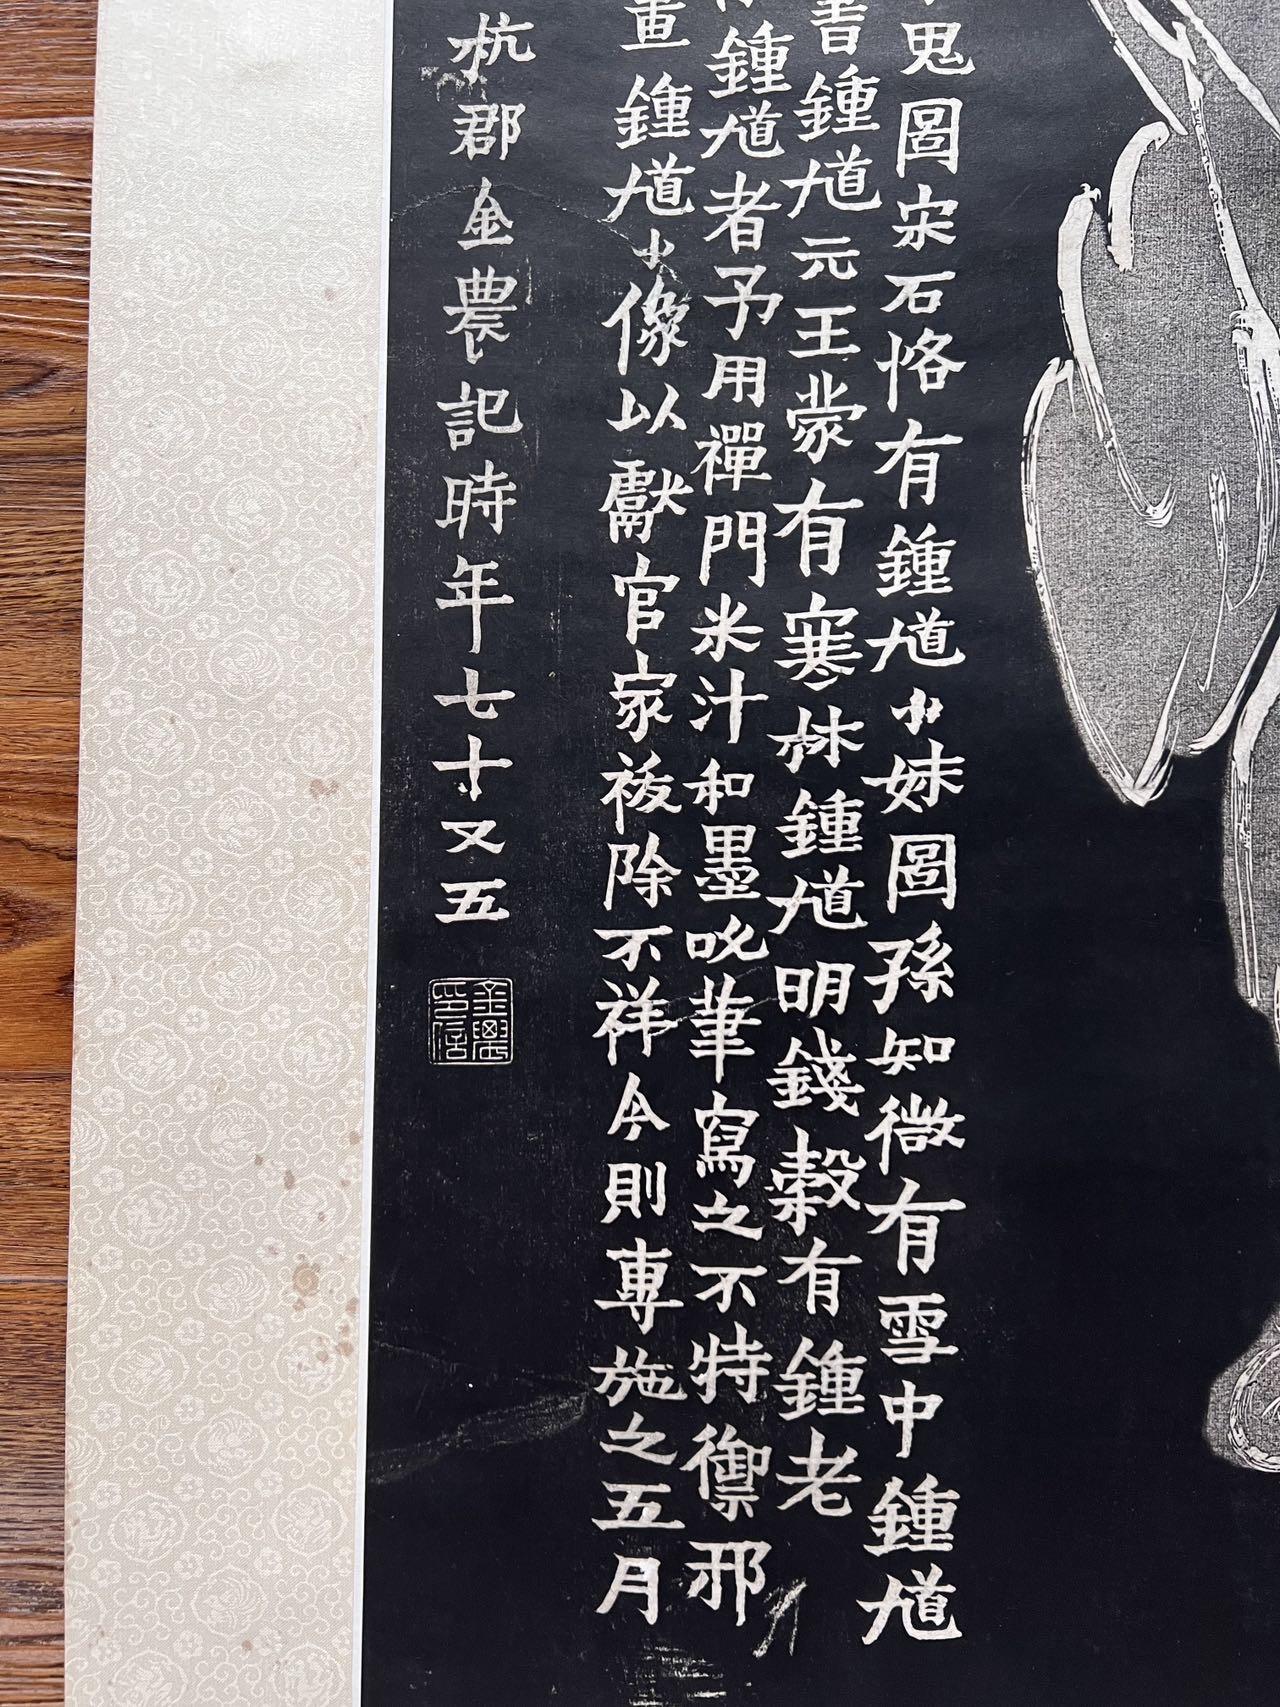 鬼圖宋石恪有鍾馗小妹圖孫知微有雪中鍾馗
書鍾馗元王蒙有寒林鍾馗明錢穀有鍾老
鍾馗者予用禪門米汁和墨吮筆寫之不特禦邪
畫鍾馗小像以獻官家祓除不祥今則專施之五月
杭郡金農記時年七十又五
金農印信